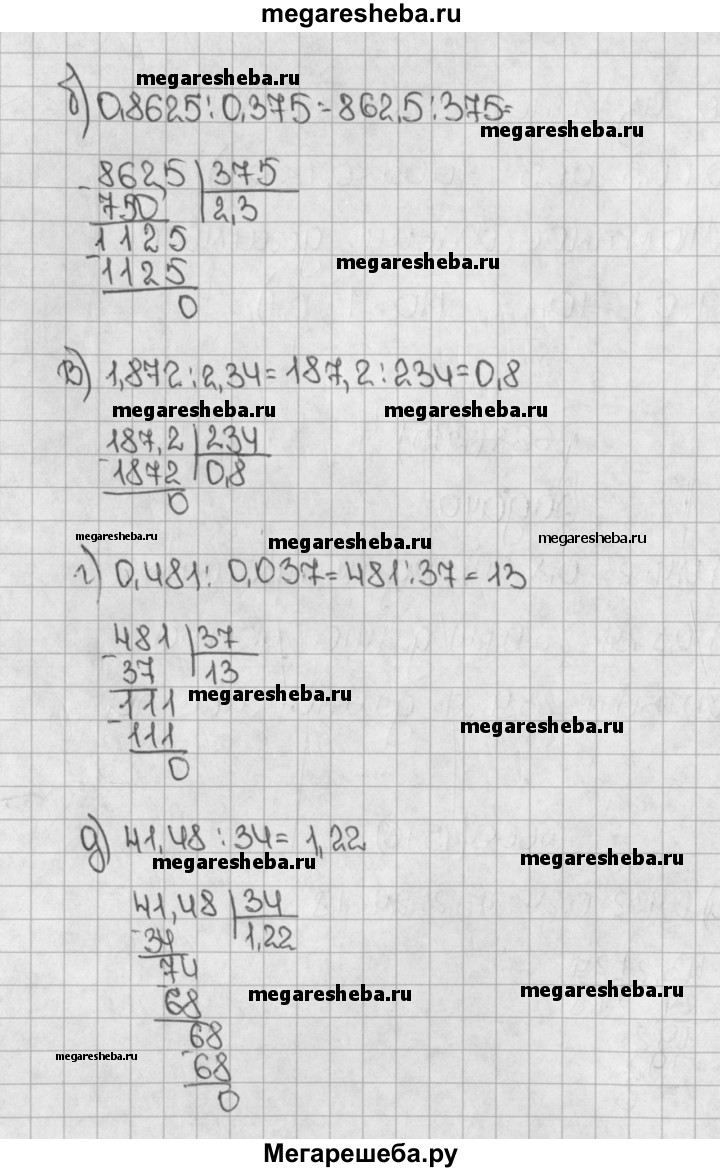 megaresheba.ru
megaresheba.ru
б) 0,8625 : 0,375 = 862,5 : 375=
megaresheba.ru
862,5 | 375
- 750 | 2,3
1125
megaresheba.ru
- 1125
0
в) 1,872 : 2,34 = 187,2 : 234 = 0,8
megaresheba.ru megaresheba.ru
187,2 | 234
- 1872 | 0,8
0
megaresheba.ru megaresheba.ru megaresheba.ru
г) 0,481 : 0,037 = 481 : 37 = 13
481 | 37
- 37 | 13
megaresheba.ru
111
megaresheba.ru
- 111
0
д) 41,48 : 34 = 1,22
megaresheba.ru megaresheba.ru
41,48 | 34
- 34 | 1,22
74
megaresheba.ru megaresheba.ru
- 68
68
megaresheba.ru
- 68
0
Мегарешеба.ру